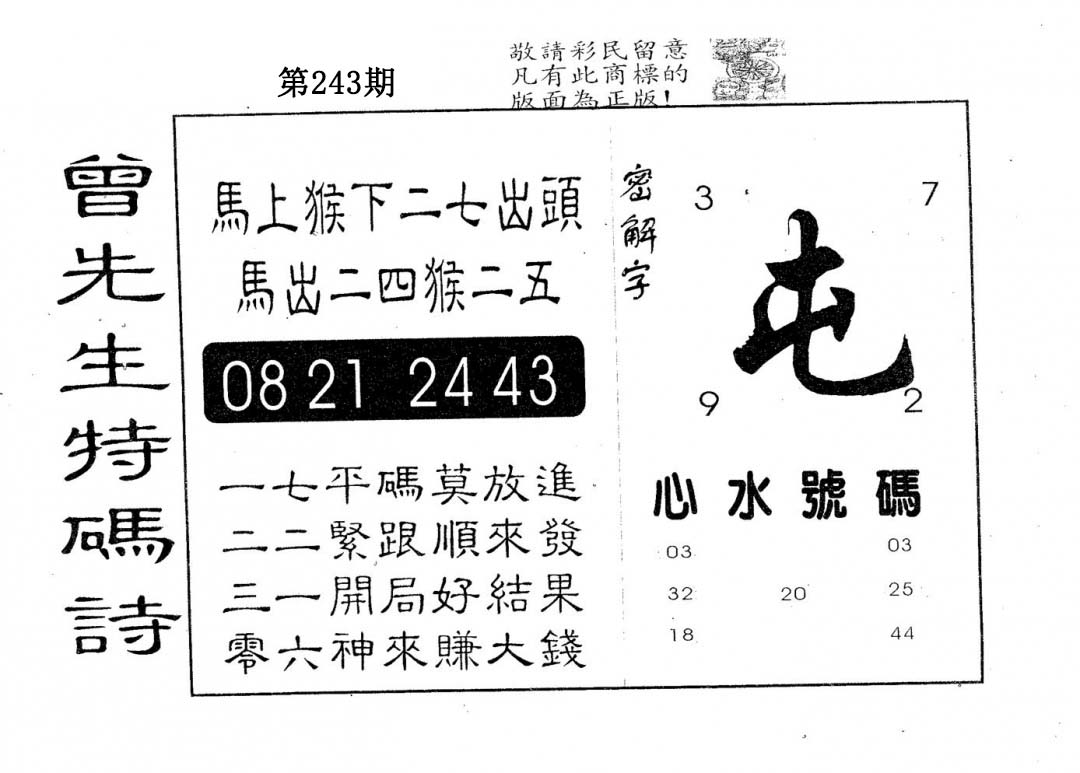 敬請彩民留意
凡有此商標的
版面為正版!
第243期
曾先生特碼詩
馬上猴下二七出頭
馬出二四猴二五
08 21 24 43
一七平碼莫放進
二二緊跟順來發
三一開局好結果
零六神來賺大錢
密解字
3 7
屯
9 2
心水號碼
03 03
32 20 25
18 44